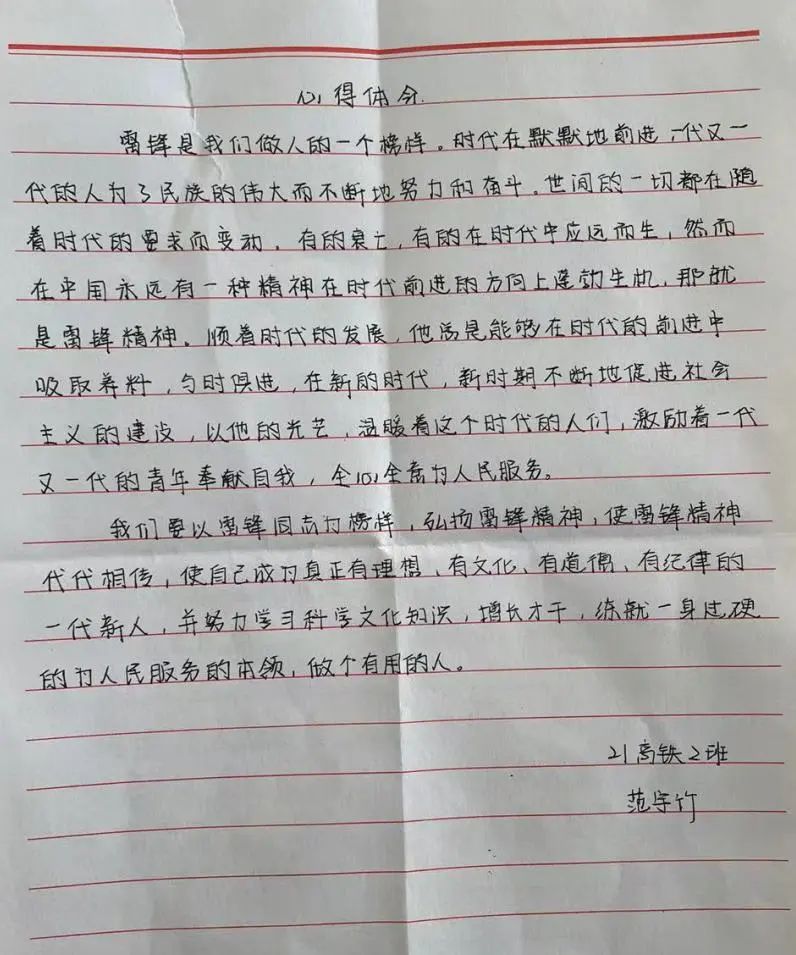 心得体会
雷锋是我们做人的一个榜样。时代在默默地前进,一代又一
代的人为了民族的伟大而不断地努力和奋斗。世间的一切都在随
着时代的要求而变动,有的衰亡,有的在时代中应运而生,然而
在中国永远有一种精神在时代前进的方向上蓬勃生机,那就
是雷锋精神。顺着时代的发展,他总是能够在时代的前进中
吸取养料,与时俱进,在新的时代,新时期不断地促进社会
主义的建设,以他的光芒,温暖着这个时代的人们,激励着一代
又一代的青年奉献自我,全心全意为人民服务。
我们要以雷锋同志为榜样,弘扬雷锋精神,使雷锋精神
代代相传,使自己成为真正有理想、有文化、有道德、有纪律的
一代新人,并努力学习科学文化知识,增长才干,练就一身过硬
的为人民服务的本领,做个有用的人。
21高铁2班
范宇竹